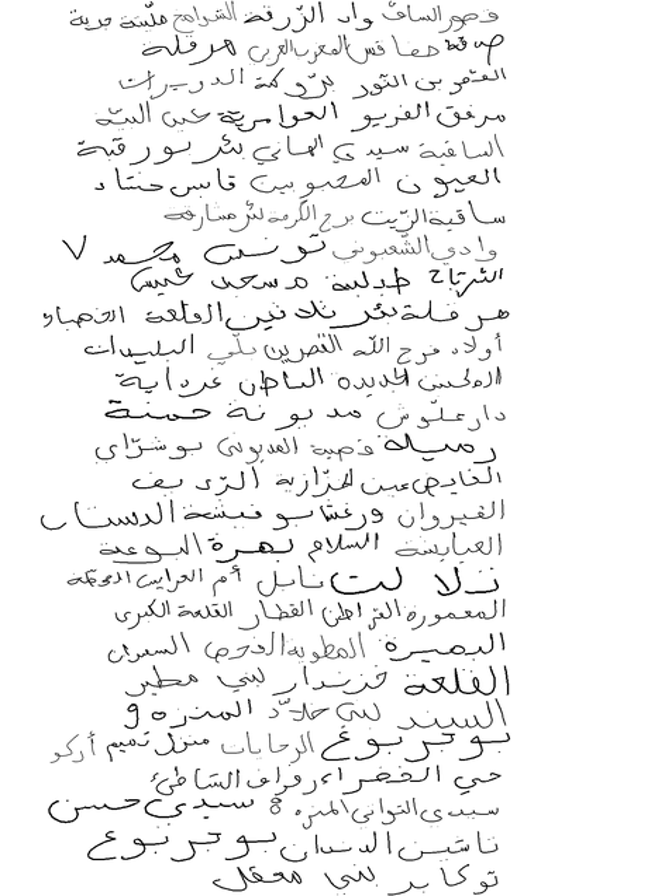 قصور الساف واد الزرقة الشرايع ملّيتة جربة
صفاقس المغرب العربي هرقلة
القصر بن النور بروكة الدويرات
مرفق الفريو العوامرية عين البيّة
الساقية سيدي الهاني بئر بورقبة
العيون المحبوبين قابس حشاد
ساقية الزيت برج الكرمة بئر مشارقة
وادي الشعبوني تونس محمد V
الشرباح طبلبة مسجد عيسى
هرقلة بئر ثلاثين القلعة الخصبة
أولاد فرج اللّه القصرين تلّي البليدات
الجديدة الباطن غرداية
دار علّوش مديونة حمنة
رميلة قصيبة المديوني بوشرّاي
الفايض عين الحزازية الرديف
القيروان ورغش بوفيشة
العبايشة السلام زهرة
زلالت نابل أم العرايس
المعمورة القراطن القطار القلعة الكبرى
البحيرة المطوية الفحص السعيدان
القلعة خزندار لبني مطير
السند بني خلاّد المنزه 9
بوجربوع الرحايات منزل تميم أركو
حي الخضراء رواد الشاطئ
سيدي التواتي المنزه 8 سيدي حسن
تاشين الدندان بوجربوع
توكابر بني معقل